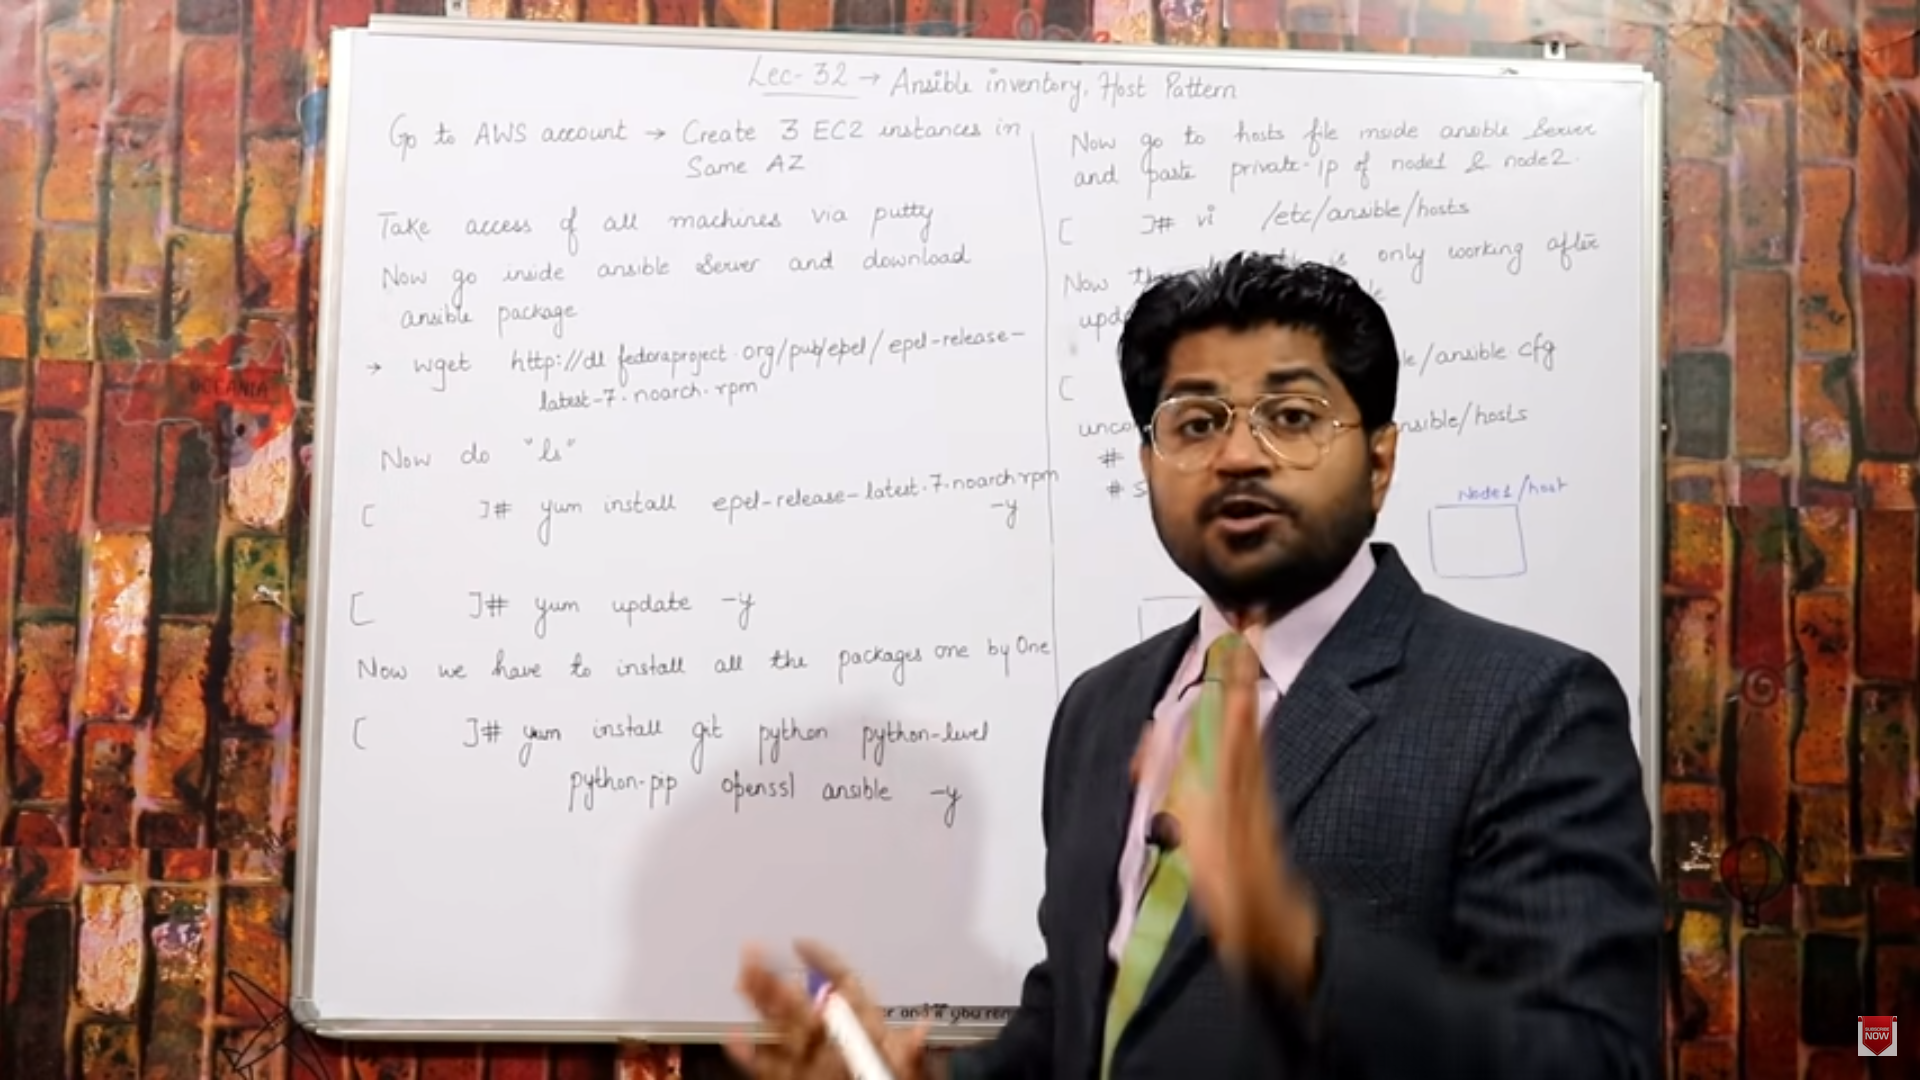 Lec-32 → Ansible inventory, Host Pattern
Go to AWS account → Create 3 EC2 instances in
Same AZ
Take access of all machines via putty
Now go inside ansible Server and download
ansible package
→ wget http://dl.fedoraproject.org/pub/epel/epel-release-
latest-7.noarch.rpm
Now do "ls"
[ ]# yum install epel-release-latest-7.noarch.rpm
-y
[ ]# yum update -y
Now we have to install all the packages one by One
[ ]# yum install git python python-level
python-pip openssl ansible -y
Now go to hosts file inside ansible Server
and paste private-ip of node1 & node2.
[ ]# vi /etc/ansible/hosts
Now is only working after
[ le/ansible cfg
nsible/hosts
#
# s
Node1/host
and if you
OCEANIA
SUBSCRIBE
NOW